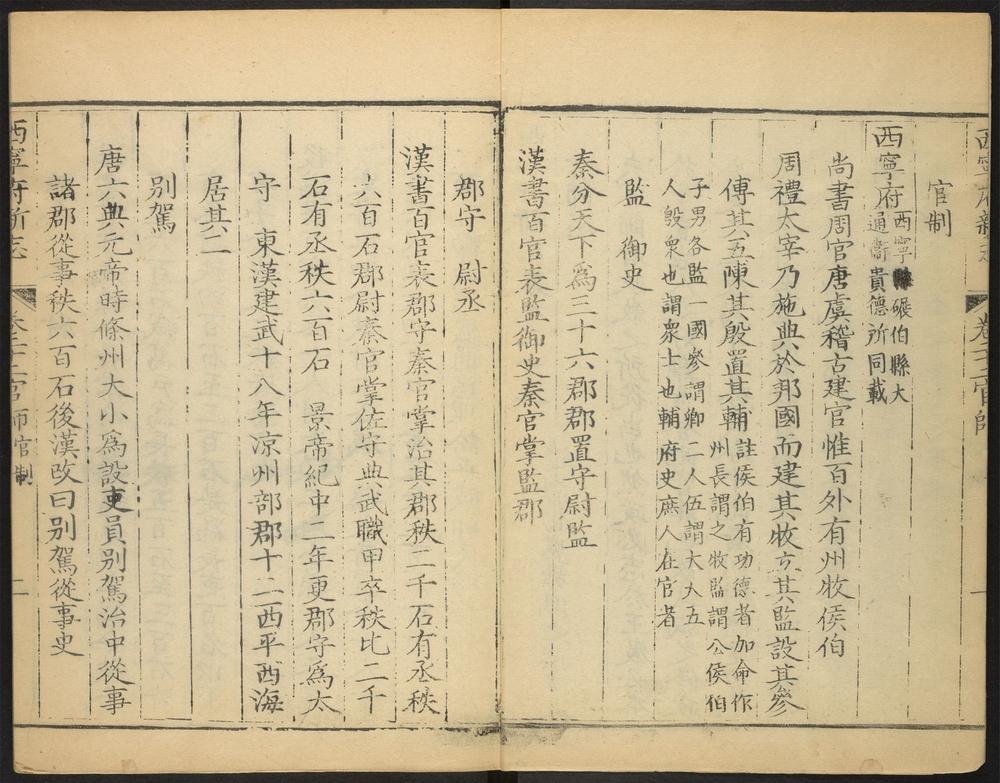 官制
西寧府西寧縣碾伯縣大
通衞貴德所同載
尚書周官唐虞稽古建官惟百外有州牧侯伯
周禮太宰乃施典於邦國而建其牧立其監設其參
傅其五陳其殷置其輔註侯伯有功德者加命作
州長謂之牧監謂公侯伯
子男各監一國參謂卿二人伍謂大夫五
人殷衆也謂衆士也輔府史庶人在官者
監 御史
秦分天下為三十六郡郡置守尉監
漢書百官表監御史秦官掌監郡
郡守 尉丞
漢書百官表郡守秦官掌治其郡秩二千石有丞秩
六百石郡尉秦官掌佐守典武職甲卒秩比二千
石有丞秩六百石 景帝紀中二年更郡守爲太
守 東漢建武十八年凉州部郡十二西平西海
居其二
别駕
唐六典元帝時條州大小爲設吏員别駕治中從事
諸郡從事秩六百石後漢改曰别駕從事史
西寧府新志 卷二十二官師官制 二